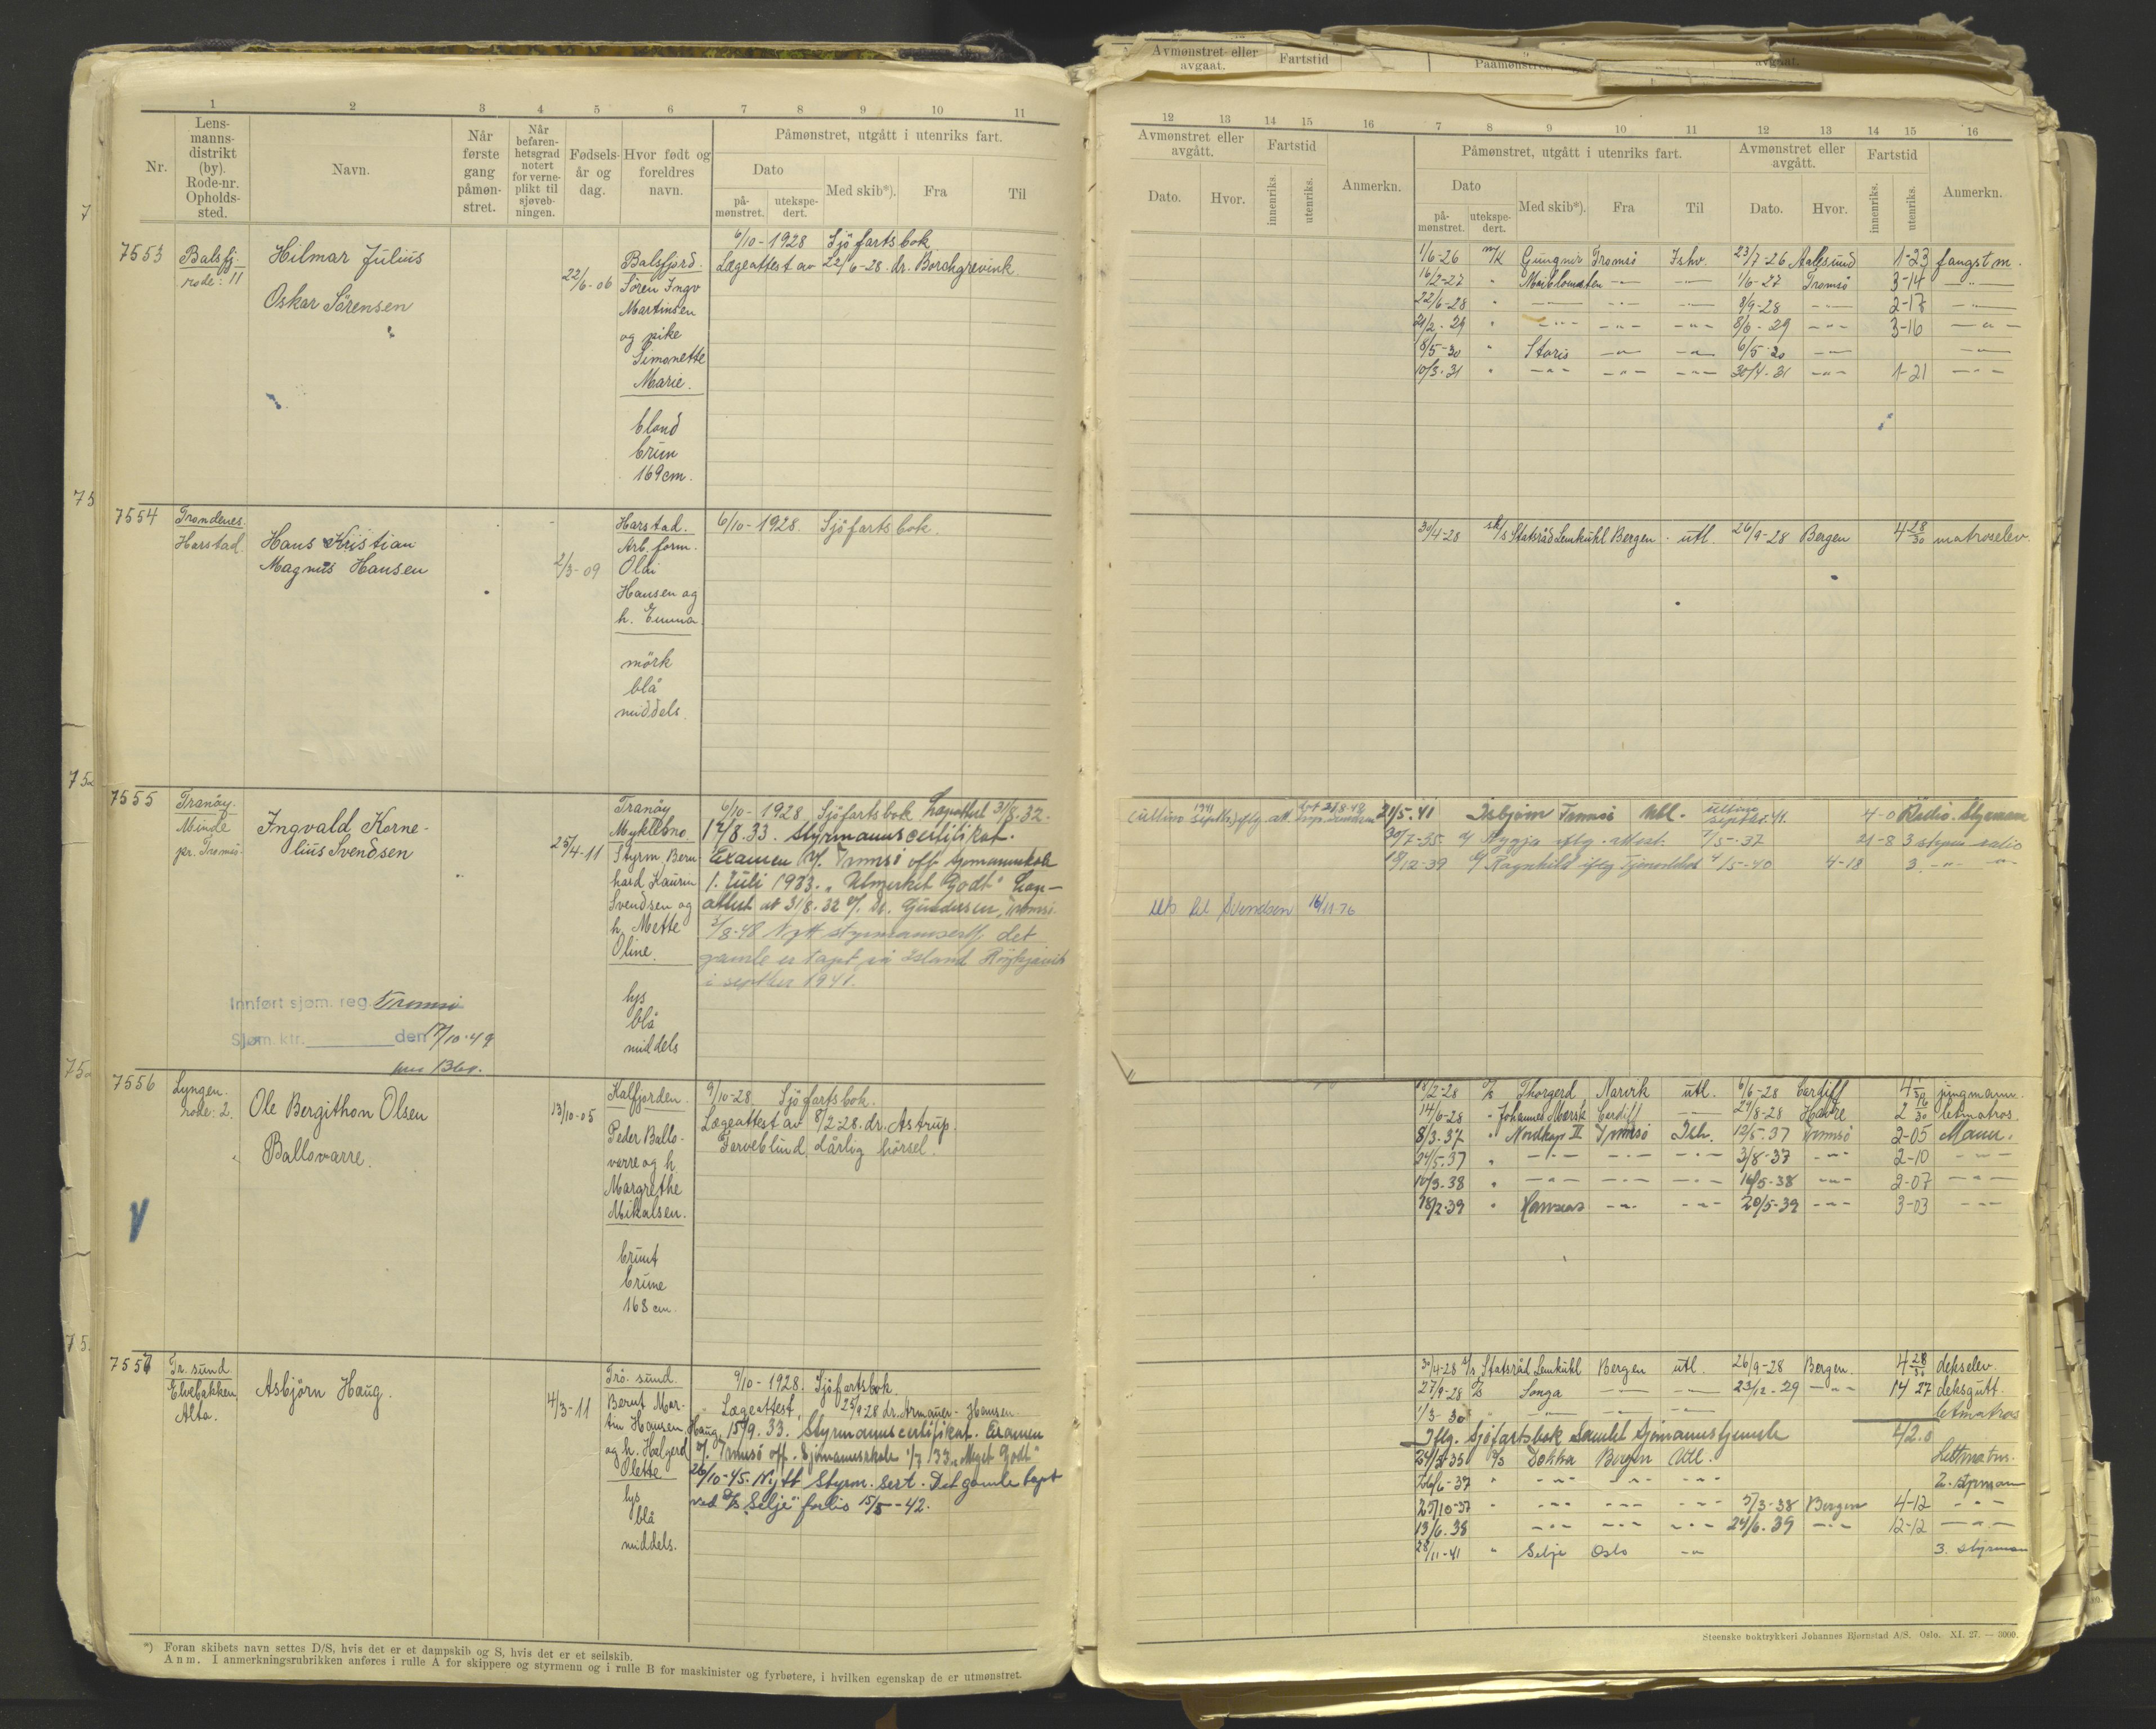 Avmønstret eller
avgaat.
Fartstid
1 2 3 4 5 6 7 8 9 10 11
Nr.
Lens-
manns-
distrikt
(by).
Rode-nr.
Opholds-
sted.
Navn.
Når
første
gang
påmøn-
stret.
Når
befaren-
hetsgrad
notert
for verne-
plikt til
sjøveb-
ningen.
Fødsels-
år og
dag.
Hvor født og
foreldres
navn.
Påmønstret, utgått i utenriks fart.
Dato
på-
mønstret.
utekspe-
dert.
Med skib*).
Fra
Til
7553
Balsfj.
rode: 11
Hilmar Julius
Oskar Sörensen
22/6-06
Balsfjord.
Sören Ingv
Martinsen
og pike
Simonette
Marie.
blond
brun
169 cm.
6/10-1928 Sjöfartsbok
Lægeattest av 22/6-28. dr. Borchgrevink.
7554
Trondenes.
Harstad
Hans Kristian
Magnus Hansen
2/3-09
Harstad.
Arb. form.
Olai
Hansen og
h. Emma.
mörk
blå
middels.
6/10-1928. Sjöfartsbok.
7555
Tranöy.
Minde
pr. Tromsö
Ingvald Korne-
lius Svendsen
25/4-11
Tranöy
Myklebno
Styrm. Bern-
hard Kaurin
Svendsen og
h. Mette
Oline.
lys
blå
middels
6/10-1928 Sjöfartsbok 31/8.32.
17/8.33. Styrmannscertifikat.
Examen v/. Tromsö off. Sjömannsskole
1. Juli 1933. "Utmerket Godt" Læge-
attest at 31/8.32 v/. Dr. Gjertsen, Tromsö
3/8-48 Nytt styrmannsertf, det
gamle er tapt på Island
i septber 1941.
Innført sjøm. reg. Tromsö
Sjøm. ktr. den 17/10-49
7556
Lyngen.
rode: 2.
Ole Bergithon Olsen
Ballovarre.
13/10-05
Kalfjorden.
Peder Ballo-
varre og h.
Margrethe
Mikalsen.
brunt
brune
168 cm.
9/10-28. Sjöfartsbok.
Lægeattest av 8/2-28. dr. Astrup.
Farveblind, dårlig hörsel.
7557
Tr. sund
Elvebakken
Alta.
Asbjörn Haug.
4/3-11
Trö. sund.
Bernt Mar-
tin Hansen Haug
og h. Halgerd
Olette
lys
blå
middels.
9/10-1928. Sjöfartsbok.
Lægeattest, 25/9-28 dr. Armauer-Hansen
15/9.33. Styrmannscertifikat. Examen
v/. Tromsö off. Sjömannsskole 1/7 133 "Meget Godt"
26/10-45. Nytt Styrm. sert. Det gamle tapt
ved D/S "Selje" forlis 15/5-42.
*) Foran skibets navn settes D/S, hvis det er et dampskib og S, hvis det er et seilskib.
Anm. I anmerkningsrubrikken anføres i rulle A for skippere og styrmenn og i rulle B for maskinister og fyrbøtere, i hvilken egenskap de er utmønstret.
12 13 14 15 16 7 8 9 10 11 12 13 14 15 16
Avmønstret eller
avgått.
Fartstid
Dato.
Hvor.
innenriks.
utenriks.
Anmerkn.
Påmønstret, utgått i utenriks fart.
Dato
på-
mønstret.
utekspe-
dert.
Med skib*).
Fra
Til
Avmønstret eller
avgått.
Dato.
Hvor.
Fartstid
innenriks.
utenriks.
Anmerkn.
1/6-26 m/K Gungner Tromsö Ishv. 23/7-26 Aalesund 1-23 fangstm.
16/2-27 " Maiblomsten -"- -"- 1/6-27 Tromsö 3-14 -"-
22/6-28 " -"- -"- -"- 8/9-28 -"- 2-17 -"-
21/2-29 " -"- -"- -"- 8/6-29 -"- 3-16 -"-
8/5-30 " Storis -"- -"- 6/5-30 -"- -"-
10/3-31 " -"- -"- -"- 30/4-31 -"- 1-21 -"-
30/4-28 sk/s Statsråd Lemkühl Bergen utl. 26/9-28 Bergen 4 28/30 matroselev.
ultimo septbr, iflg. att.
21/5.41 Isbjörn Tromsö Utl. ultimo septbr. 41. 4-0 Radio. Styrmann
30/7-35 Nygja iflg. attest. 7/5-37 21-8 3 styrm radio
18/12-39 Ragnhild iflg 4/5-40 4-18 3. -"- -"-
Svendsen 16/11-76
18/2-28 D/S Thorgerd Narvik utl. 6/6-28 Cardiff 4 jungmann.
14/6-28 " Johannes Mærsk Cardiff -"- 29/8-28 Havre 2 16/30 letmatros.
8/3.37 " Nordkap II Tromsö Ish. 12/5-37 Tromsö 2-05 Mann.
24/5.37 " -"- -"- -"- 3/8-37 -"- 2-10 -"-
10/3.38 " -"- -"- -"- 16/5-38 -"- 2-07 -"-
18/2-39 " -"- -"- 20/5-39 -"- 3-03 -"-
30/4-28 s/s Statsråd Lemkühl Bergen utl. 26/9-28 Bergen. 4 28/30 dekselev.
27/9-28 D/S Songa -"- -"- 23/12-29 -"- 14 27 deksgutt.
1/3-30 -"- -"- -"- letmatros
Iflg. Sjöfartsbok Samlet Sjömannstjeneste 42.0
24/5-35 D/S Dokka Bergen Utl. Lettmatros.
26/6-37 " -"- -"- -"- 2. styrmann
25/10-37 " -"- -"- -"- 5/3-38 Bergen 4-12 -"-
13/6.38 -"- -"- -"- 24/6.39 -"- 12-12 -"-
28/11-41 " Selje Oslo -"- 3. styrman
Steenske boktrykkeri Johannes Bjørnstad A/S. Oslo. XI. 27. — 3000.